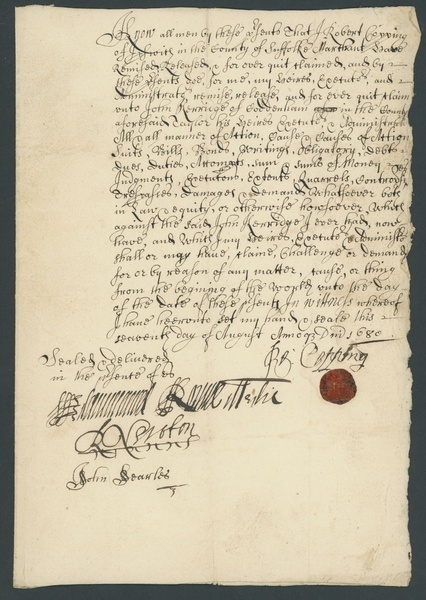 Know all men by these psents That I Robert Copping
of Ipswich in the County of Suffolke Marchant have
Remised Released & for ever quit claimed, and by
these psents doe, for me, my heires, Execut, and
Administrat remise, release, and for ever quit claime
unto John Kerridge of Coddenham in the County
aforesaid his heires Execut & Administrat
All & all manner of Action, Cause & Causes of Action
Suits, Bills, Bonds, Writings, Obligatory, debts
dues, duties, Accompts, sum & sums of Money
Judgments, Executions, Extents, Quarrels, Controv
Trespasses, damages & demands whatsoever both
in Law & equity, or otherwise howsoever, which
against the said John Kerridge I ever had, now
have, and which I my heires, Execut & Administ
shall or may have, claime, Challenge or demand
for or by reason of any matter, cause, or thing
from the begining of the World unto the day
of the date of these psents In witnes whereof
I have hereunto set my hand & seale this
seaventh day of August Anno Dni 1680
Sealed & delivered
in the psents of us
Ro: Copping
John Searles